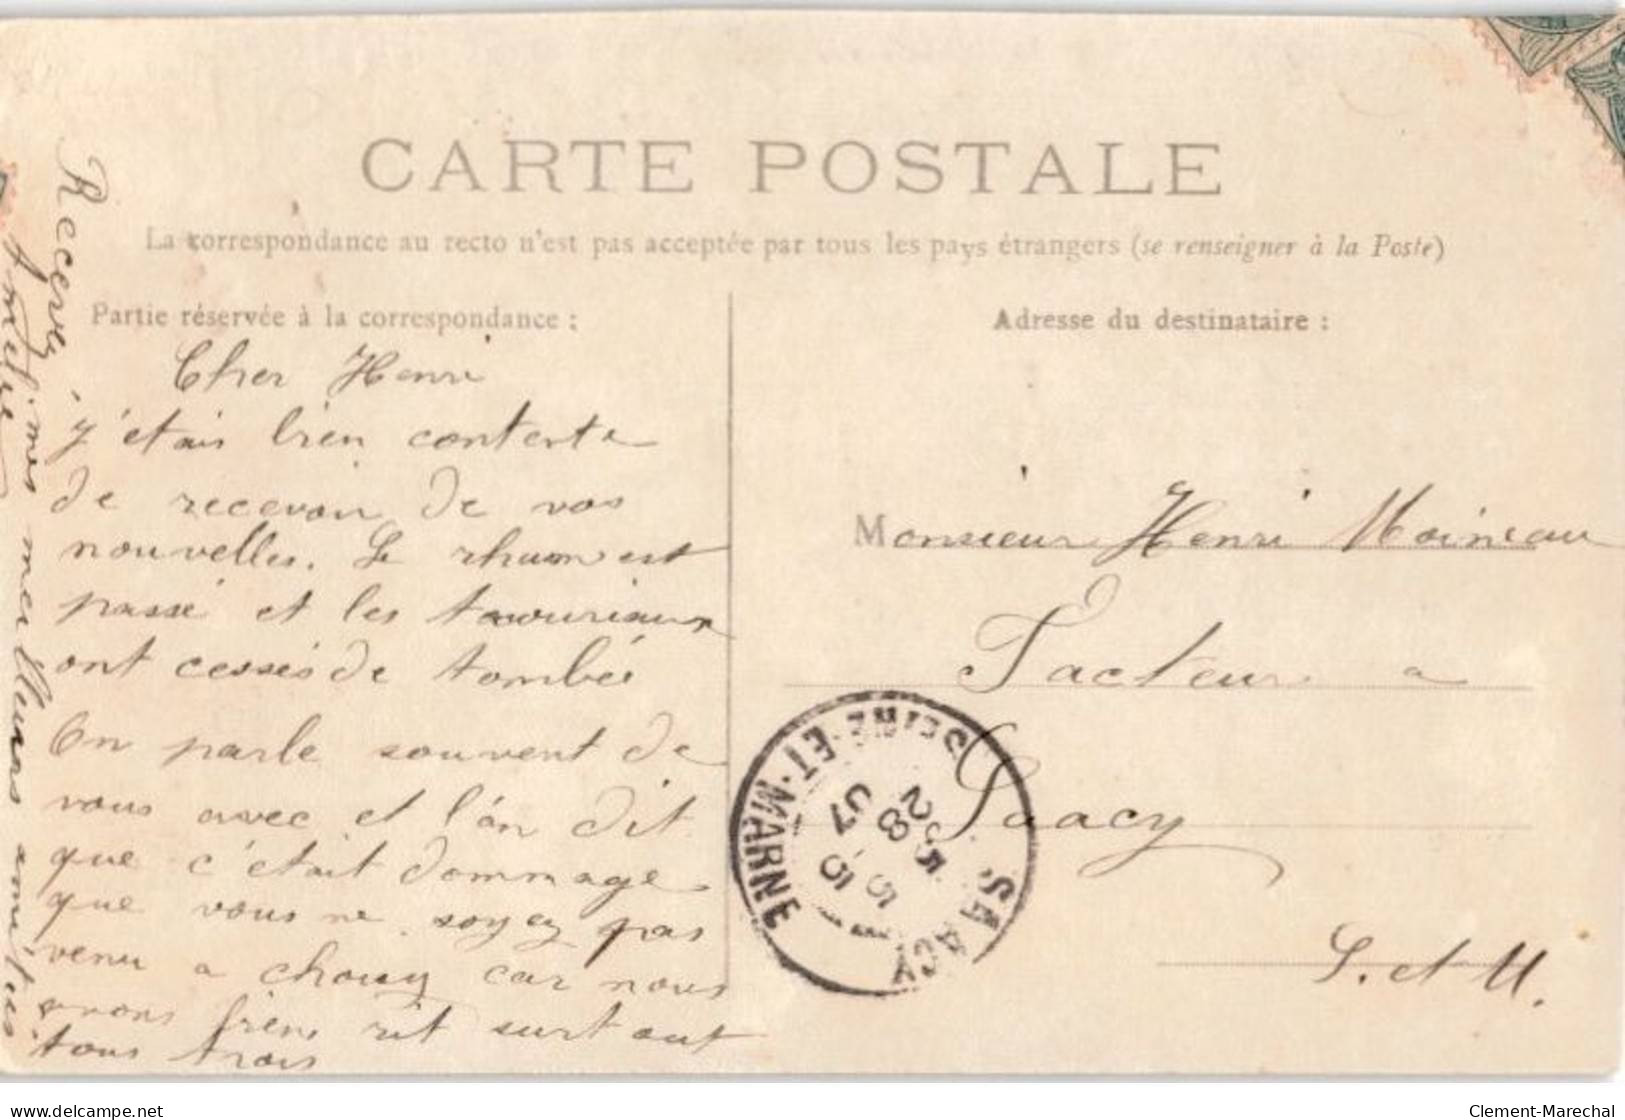 CARTE POSTALE
La correspondance au recto n'est pas acceptée par tous les pays étrangers (se renseigner à la Poste)
Partie réservée à la correspondance :
Cher Henri
j'étais bien contente
de recevoir de vos
nouvelles. Le rhum est
passé et les
ont cessés de tombée
On parle souvent de
vous avec et l'on dit
que c'était dommage
que vous ne soyez pas
venu a chouy car nous
avons bien rit surtout
tous trois
Recevez
mes meilleures amitiés
Adresse du destinataire :
Monsieur Henri Moineau
Facteur a
Saacy
S. et M.
SAACY
SEINE-ET-MARNE
28
5
07
delcampe.net
Clement-Marechal